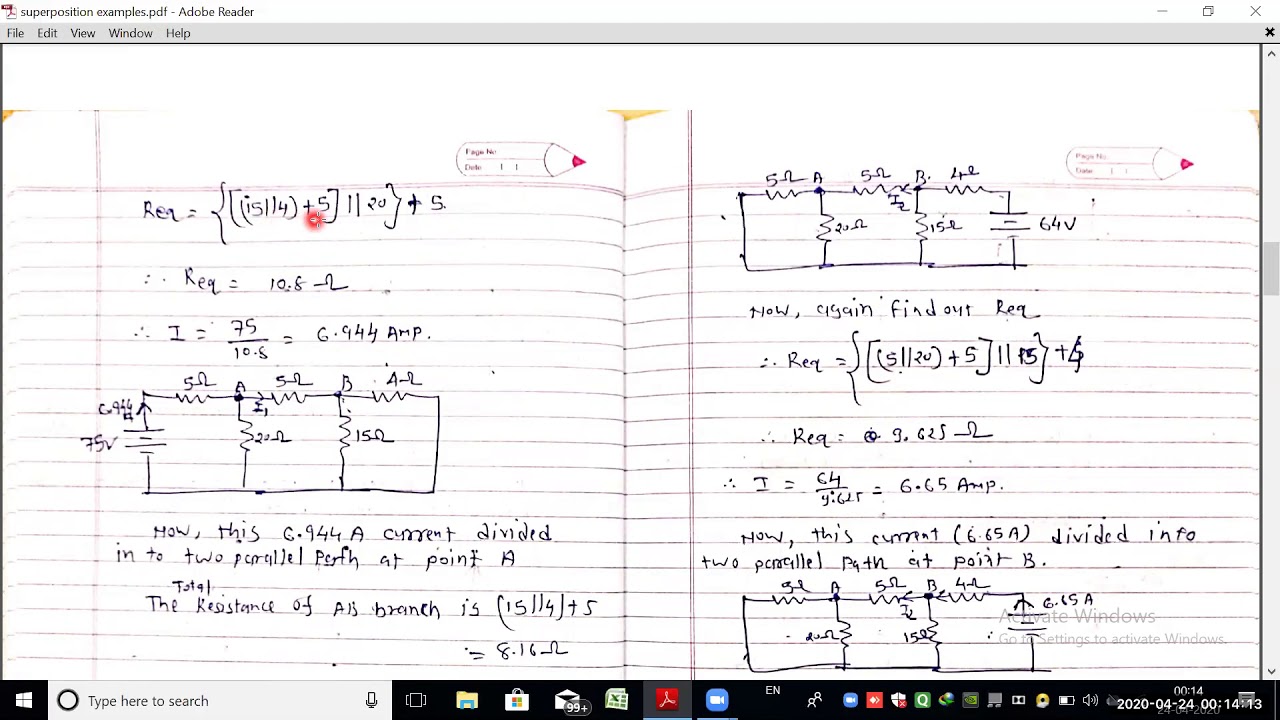 superposition examples.pdf - Adobe Reader
File Edit View Window Help
Page No.
Date
Req = {[(15||4)+5]||20}+5.
∴ Req = 10.8 Ω
∴ I = 75/10.8 = 6.944 Amp.
5Ω A 5Ω B 4Ω
6.944
I1
75V 20Ω 15Ω
Now, this 6.944 A current divided
in to two parallel Path at point A
Total
The Resistance of AB branch is (15||4)+5
= 8.16 Ω
Page No.
Date
5Ω A 5Ω B. 4Ω
I2
20Ω 15Ω 64V
Now, again find out Req
∴ Req = {[(5||20)+5]||15}+4
∴ Req = 9.625 Ω
∴ I = 64/9.625 = 6.65 Amp.
Now, this current (6.65A) divided into
two parallel path at point B.
5Ω A 5Ω B 4Ω
I2 6.65A
20Ω 15Ω
Activate Windows
Go to Settings to activate Windows.
Type here to search
99+
EN
00:14
24-04-2020
2020-04-24 00:14:13